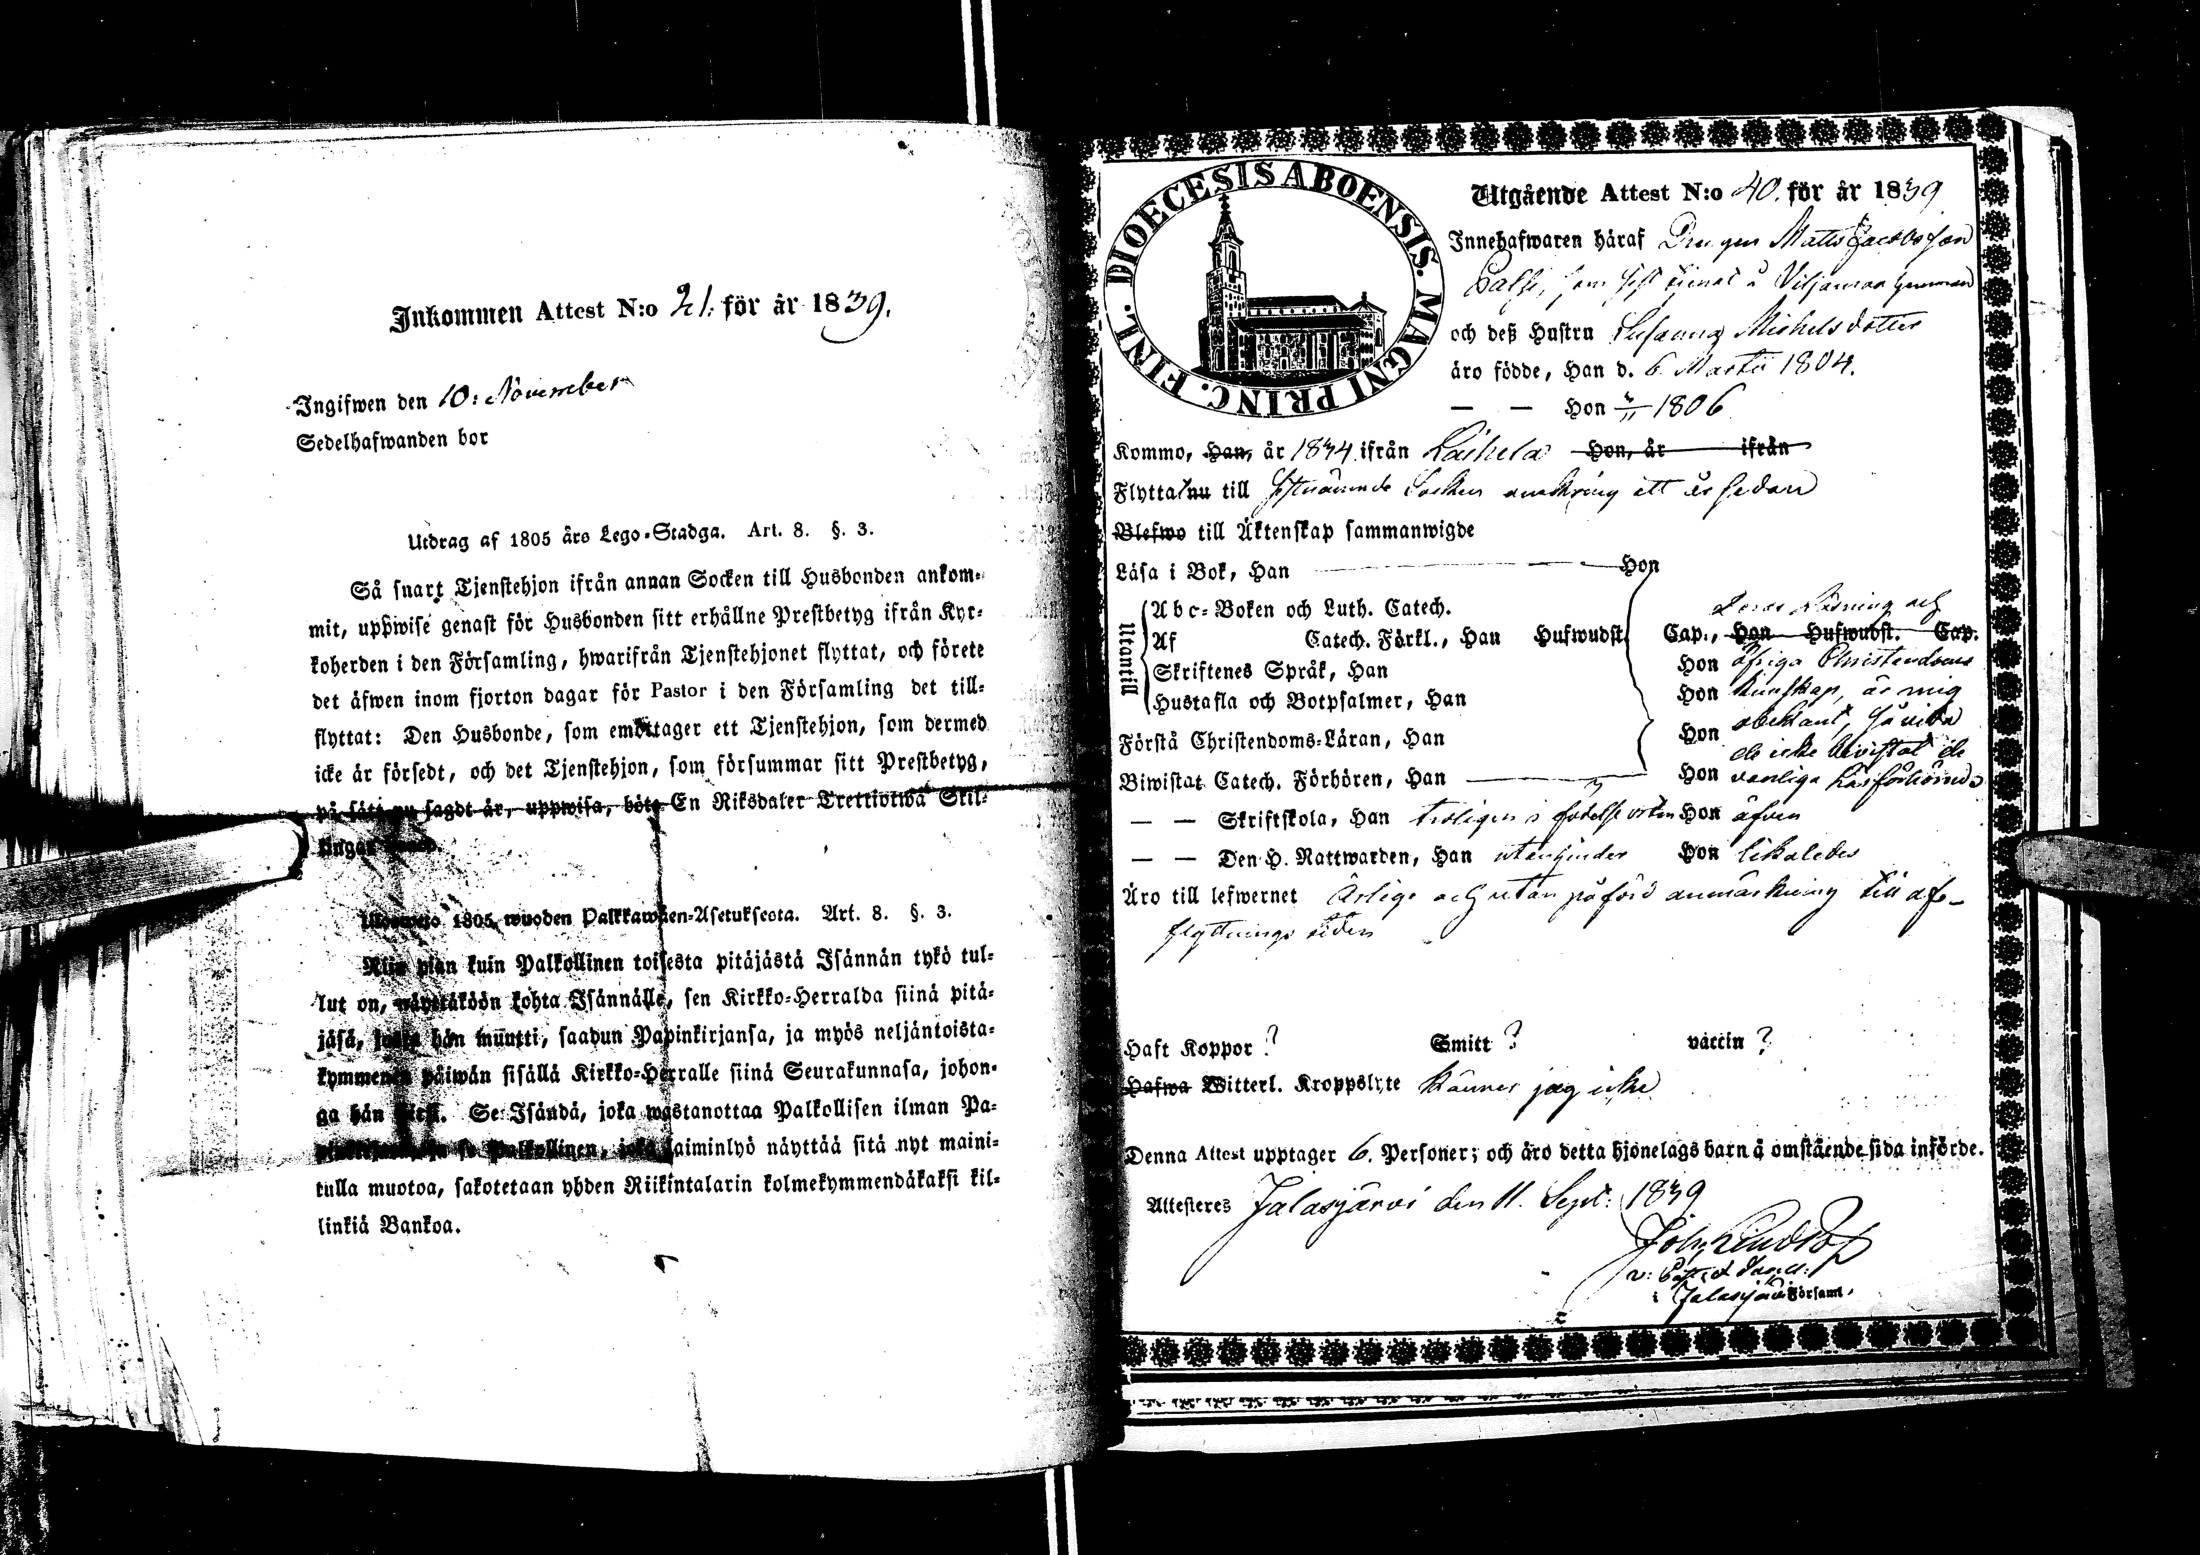 Inkommen Attest N:o 21. för år 1839.
Ingifwen den 10: November
Sedelhafwanden bor
Utdrag af 1805 års Lego-Stadga. Art. 8. §. 3.
Så snart Tjenstehjon ifrån annan Socken till Husbonden ankom-
mit, uppwise genast för Husbonden sitt erhållne Prestbetyg ifrån Kyr-
koherden i den Församling, hwarifrån Tjenstehjonet flyttat, och förete
det äfwen inom fjorton dagar för Pastor i den Församling det till-
flyttat: Den Husbonde, som emottager ett Tjenstehjon, som dermed
icke är försedt, och det Tjenstehjon, som försummar sitt Prestbetyg,
på sätt nu sagdt är, uppwisa, böte En Riksdaler Trettiotwå Skil-
lingar
1805 wuoden Palkkawäen-Asetuksesta. Art. 8. §. 3.
Niin pian kuin Palkollinen toisesta pitäjästä Isännän tykö tul-
lut on, näyttäköön kohta Isännälle, sen Kirkko-Herralda siinä pitä-
jäsä, josta hän muutti, saadun Papinkirjansa, ja myös neljäntoista-
kymmenen päiwän sisällä Kirkko-Herralle siinä Seurakunnasa, johon-
ga hän Se Isändä, joka wastanottaa Palkollisen ilman Pa-
se Palkollinen, joka laiminlyö näyttää sitä nyt maini-
tulla muotoa, sakotetaan yhden Riikintalarin kolmekymmendäkaksi kil-
linkiä Bankoa.
DIOECESIS ABOENSIS. MAGNI PRINC. FINL.
Utgående Attest N:o 40. för år 1839
Innehafwaren häraf Drengen Matts Jacobsson
som sist tjenat å
och deß Hustru Susanna Michelsdotter
äro födde, Han d. 6 Martii 1804.
— — Hon 1806
Kommo, Han, år 1834 ifrån Laihela Hon, år ifrån
Flytta nu till Socken omkring ett år sedan
Blefwo till Äktenskap sammanwigde
Läsa i Bok, Han Hon
Utantill
Abc-Boken och Luth. Catech. Deras Läsning och
Af Catech. Förkl., Han Hufwudst. Cap., Han Hufwudst. Cap.
Skriftenes Språk, Han Hon öfriga Christendoms
Hustafla och Botpsalmer, Han Hon kunskap, är mig
Förstå Christendoms-Läran, Han Hon obekant, så vida
de icke bevistat de
Biwistat Catech. Förhören, Han Hon vanliga Läsförhören
— — Skriftskola, Han troligen i födelse orten Hon äfven
— — Den H. Nattwarden, Han utan hinder Hon likaledes
Äro till lefwernet ärlige och utan påförd anmärkning till af-
flyttnings tiden
Haft Koppor ? Smitt ? vaccin ?
Hafwa Witterl. Kroppslyte känner jag icke
Denna Attest upptager 6. Personer; och äro detta hjonelags barn å omstående sida införde.
Attesteres Jalasjärvi den 11. Sept: 1839
Joh.
i Jalasjärvi Församl.